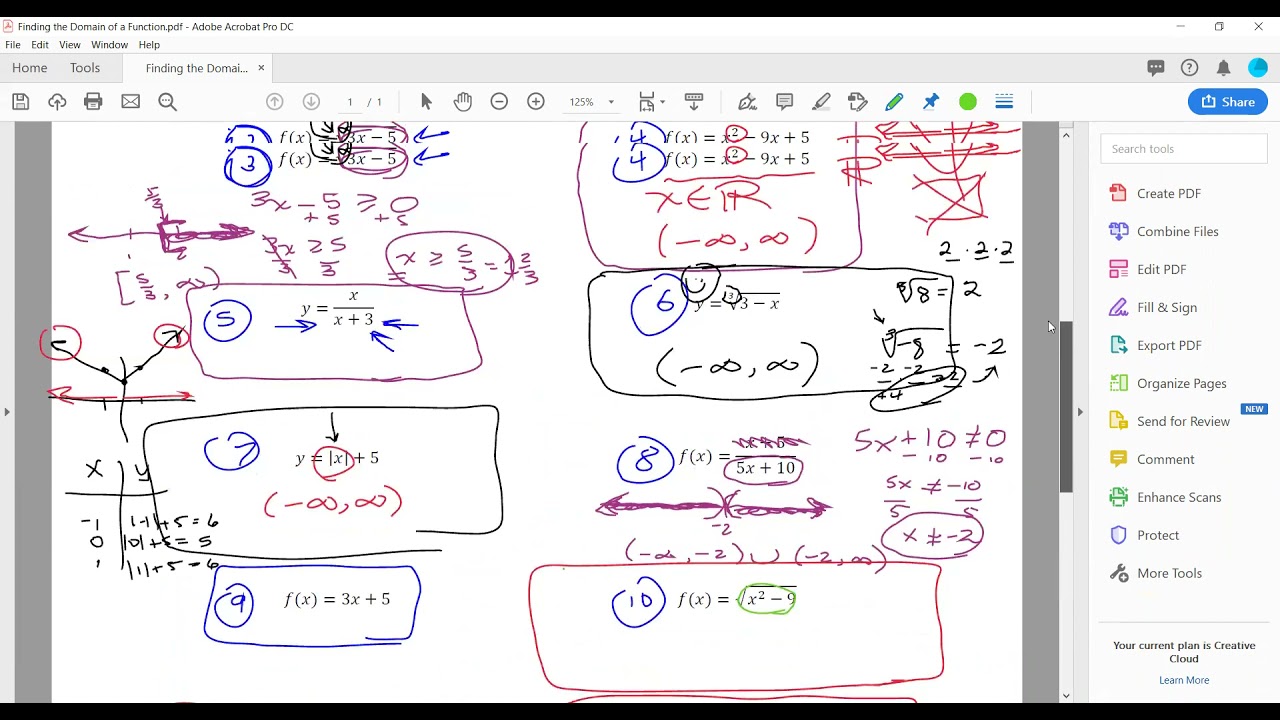 Finding the Domain of a Function.pdf - Adobe Acrobat Pro DC
File Edit View Window Help
Home Tools Finding the Domai... ×
1 / 1 125% Share
f(x) = √3x − 5
4 f(x) = x² − 9x + 5
3 f(x) = √3x − 5
4 f(x) = x² − 9x + 5
ℝ
5/3
3x − 5 ≥ 0
+5 +5
x ∈ ℝ
(−∞, ∞)
3x ≥ 5
3 3
x ≥ 5/3 = 1 2/3
[5/3, ∞)
2 · 2 · 2
5 y = x/(x + 3)
6 y = ∛3 − x
∛8 = 2
(−∞, ∞)
∛−8 = −2
−2 −2 −2
+4
7 y = |x| + 5
(−∞, ∞)
x y
−1 |−1|+5 = 6
0 |0|+5 = 5
1 |1|+5 = 6
8 f(x) = 5x + 10
5x + 10 ≠ 0
−10 −10
5x ≠ −10
5 5
x ≠ −2
−2
(−∞, −2) ∪ (−2, ∞)
9 f(x) = 3x + 5
10 f(x) = √x² − 9
Search tools
Create PDF
Combine Files
Edit PDF
Fill & Sign
Export PDF
Organize Pages
Send for Review NEW
Comment
Enhance Scans
Protect
More Tools
Your current plan is Creative
Cloud
Learn More